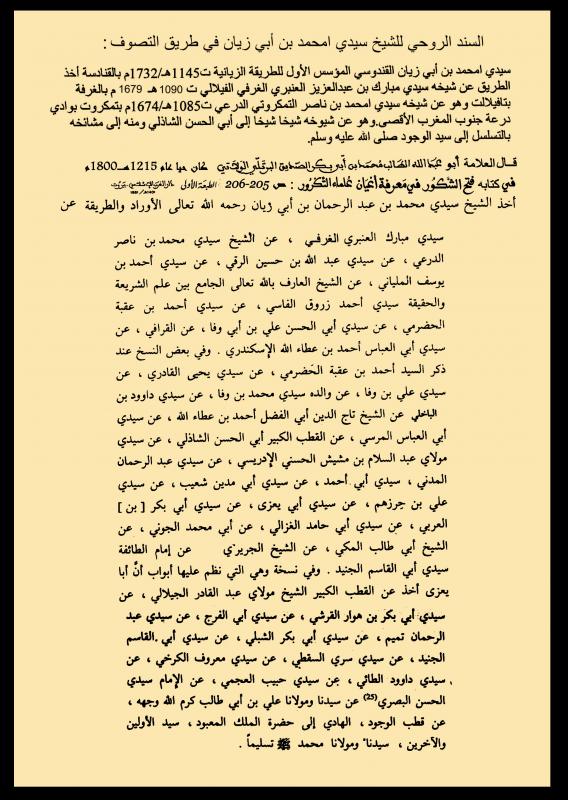 السند الروحي للشيخ سيدي امحمد بن أبي زيان في طريق التصوف :
سيدي امحمد بن أبي زيان القندوسي المؤسس الأول للطريقة الزيانية ت1145هـ/1732م بالقنادسة أخذ
الطريق عن شيخه سيدي مبارك بن عبدالعزيز العنبري الغرفي الفيلالي ت 1090 هـ 1679 م بالغرفة
بتافيلالت وهو عن شيخه سيدي امحمد بن ناصر التمكروتي الدرعي ت1085هـ/1674م بتمكروت بوادي
درعة جنوب المغرب الأقصى.وهو عن شيوخه شيخا شيخا إلى أبي الحسن الشاذلي ومنه إلى مشائخه
بالتسلسل إلى سيد الوجود صلى الله عليه وسلم.
قال العلامة أبو عبد الله الطالب محمد بن أبي بكر الصديق البرتلي الولاتي كان حيا عام 1215هـ-1800م
في كتابه فتح الشكور في معرفة أعيان علماء التكرور : ص 205-206 الطبعة الأولى
أخذ الشيخ سيدي محمد بن عبد الرحمان بن أبي زيان رحمه الله تعالى الأوراد والطريقة عن
سيدي مبارك العنبري الغرفي ، عن الشيخ سيدي محمد بن ناصر
الدرعي ، عن سيدي عبد الله بن حسين الرقي ، عن سيدي أحمد بن
يوسف الملياني ، عن الشيخ العارف بالله تعالى الجامع بين علم الشريعة
والحقيقة سيدي أحمد زروق الفاسي ، عن سيدي أحمد بن عقبة
الحضرمي ، عن سيدي أبي الحسن علي بن أبي وفا ، عن القرافي ، عن
سيدي أبي العباس أحمد بن عطاء الله الإسكندري . وفي بعض النسخ عند
ذكر السيد أحمد بن عقبة الحَضرمي ، عن سيدي يحيى القادري ، عن
سيدي علي بن وفا ، عن والده سيدي محمد بن وفا ، عن سيدي داوود بن
الباخلي عن الشيخ تاج الدين أبي الفضل أحمد بن عطاء الله ، عن سيدي
أبي العباس المرسي ، عن القطب الكبير أبي الحسن الشاذلي ، عن سيدي
مولاي عبد السلام بن مشيش الحسني الإدريسي ، عن سيدي عبد الرحمان
المدني ، سيدي أبي أحمد ، عن سيدي أبي مدين شعيب ، عن سيدي
علي بن حرزهم ، عن سيدي أبي يعزى ، عن سيدي أبي بكر [ بن ]
العربي ، عن سيدي أبي حامد الغزالي ، عن أبي محمد الجوني ، عن
الشيخ أبي طالب المكي ، عن الشيخ الجريري عن إمام الطائفة
سيدي أبي القاسم الجنيد . وفي نسخة وهي التي نظم عليها أبواب أنَّ أبا
يعزى أخذ عن القطب الكبير الشيخ مولاي عبد القادر الجيلالي ، عن
سيدي أبي بكر بن هوار القرشي ، عن سيدي أبي الفرج ، عن سيدي عبد
الرحمان تميم ، عن سيدي أبي بكر الشبلي ، عن سيدي أبي القاسم
الجنيد ، عن سيدي سري السقطي ، عن سيدي معروف الكرخي ، عن
سيدي داوود الطائي ، عن سيدي حبيب العجمي ، عن الإمام سيدي
الحسن البصري(25) عن سيدنا ومولانا علي بن أبي طالب كرم الله وجهه ،
عن قطب الوجود ، الهادي إلى حضرة الملك المعبود ، سيد الأولين
والآخرين ، سيدنا ومولانا محمد ﷺ تسليماً .